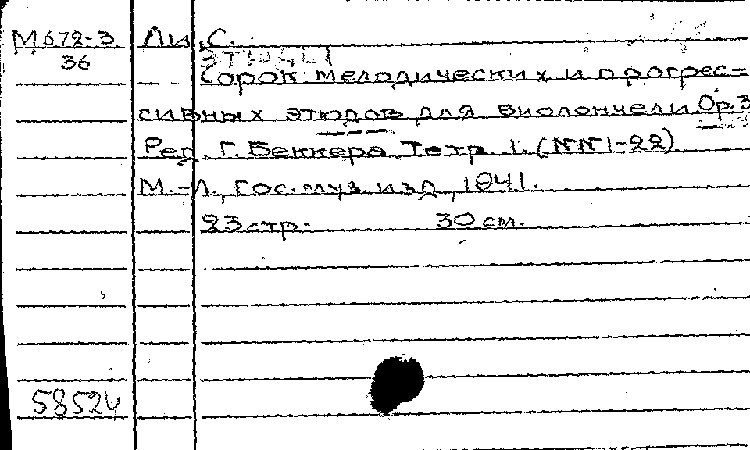 М672-3 Ли, С.
36 Этюды
Сорок мелодических и прогрес-
сивных этюдов для виолончели Ор.3
Ред. Г. Беккера. Тетр. 1. (NN 1-22)
М.-Л., Гос. муз. изд., 1941.
23 стр. 30 см.
58524